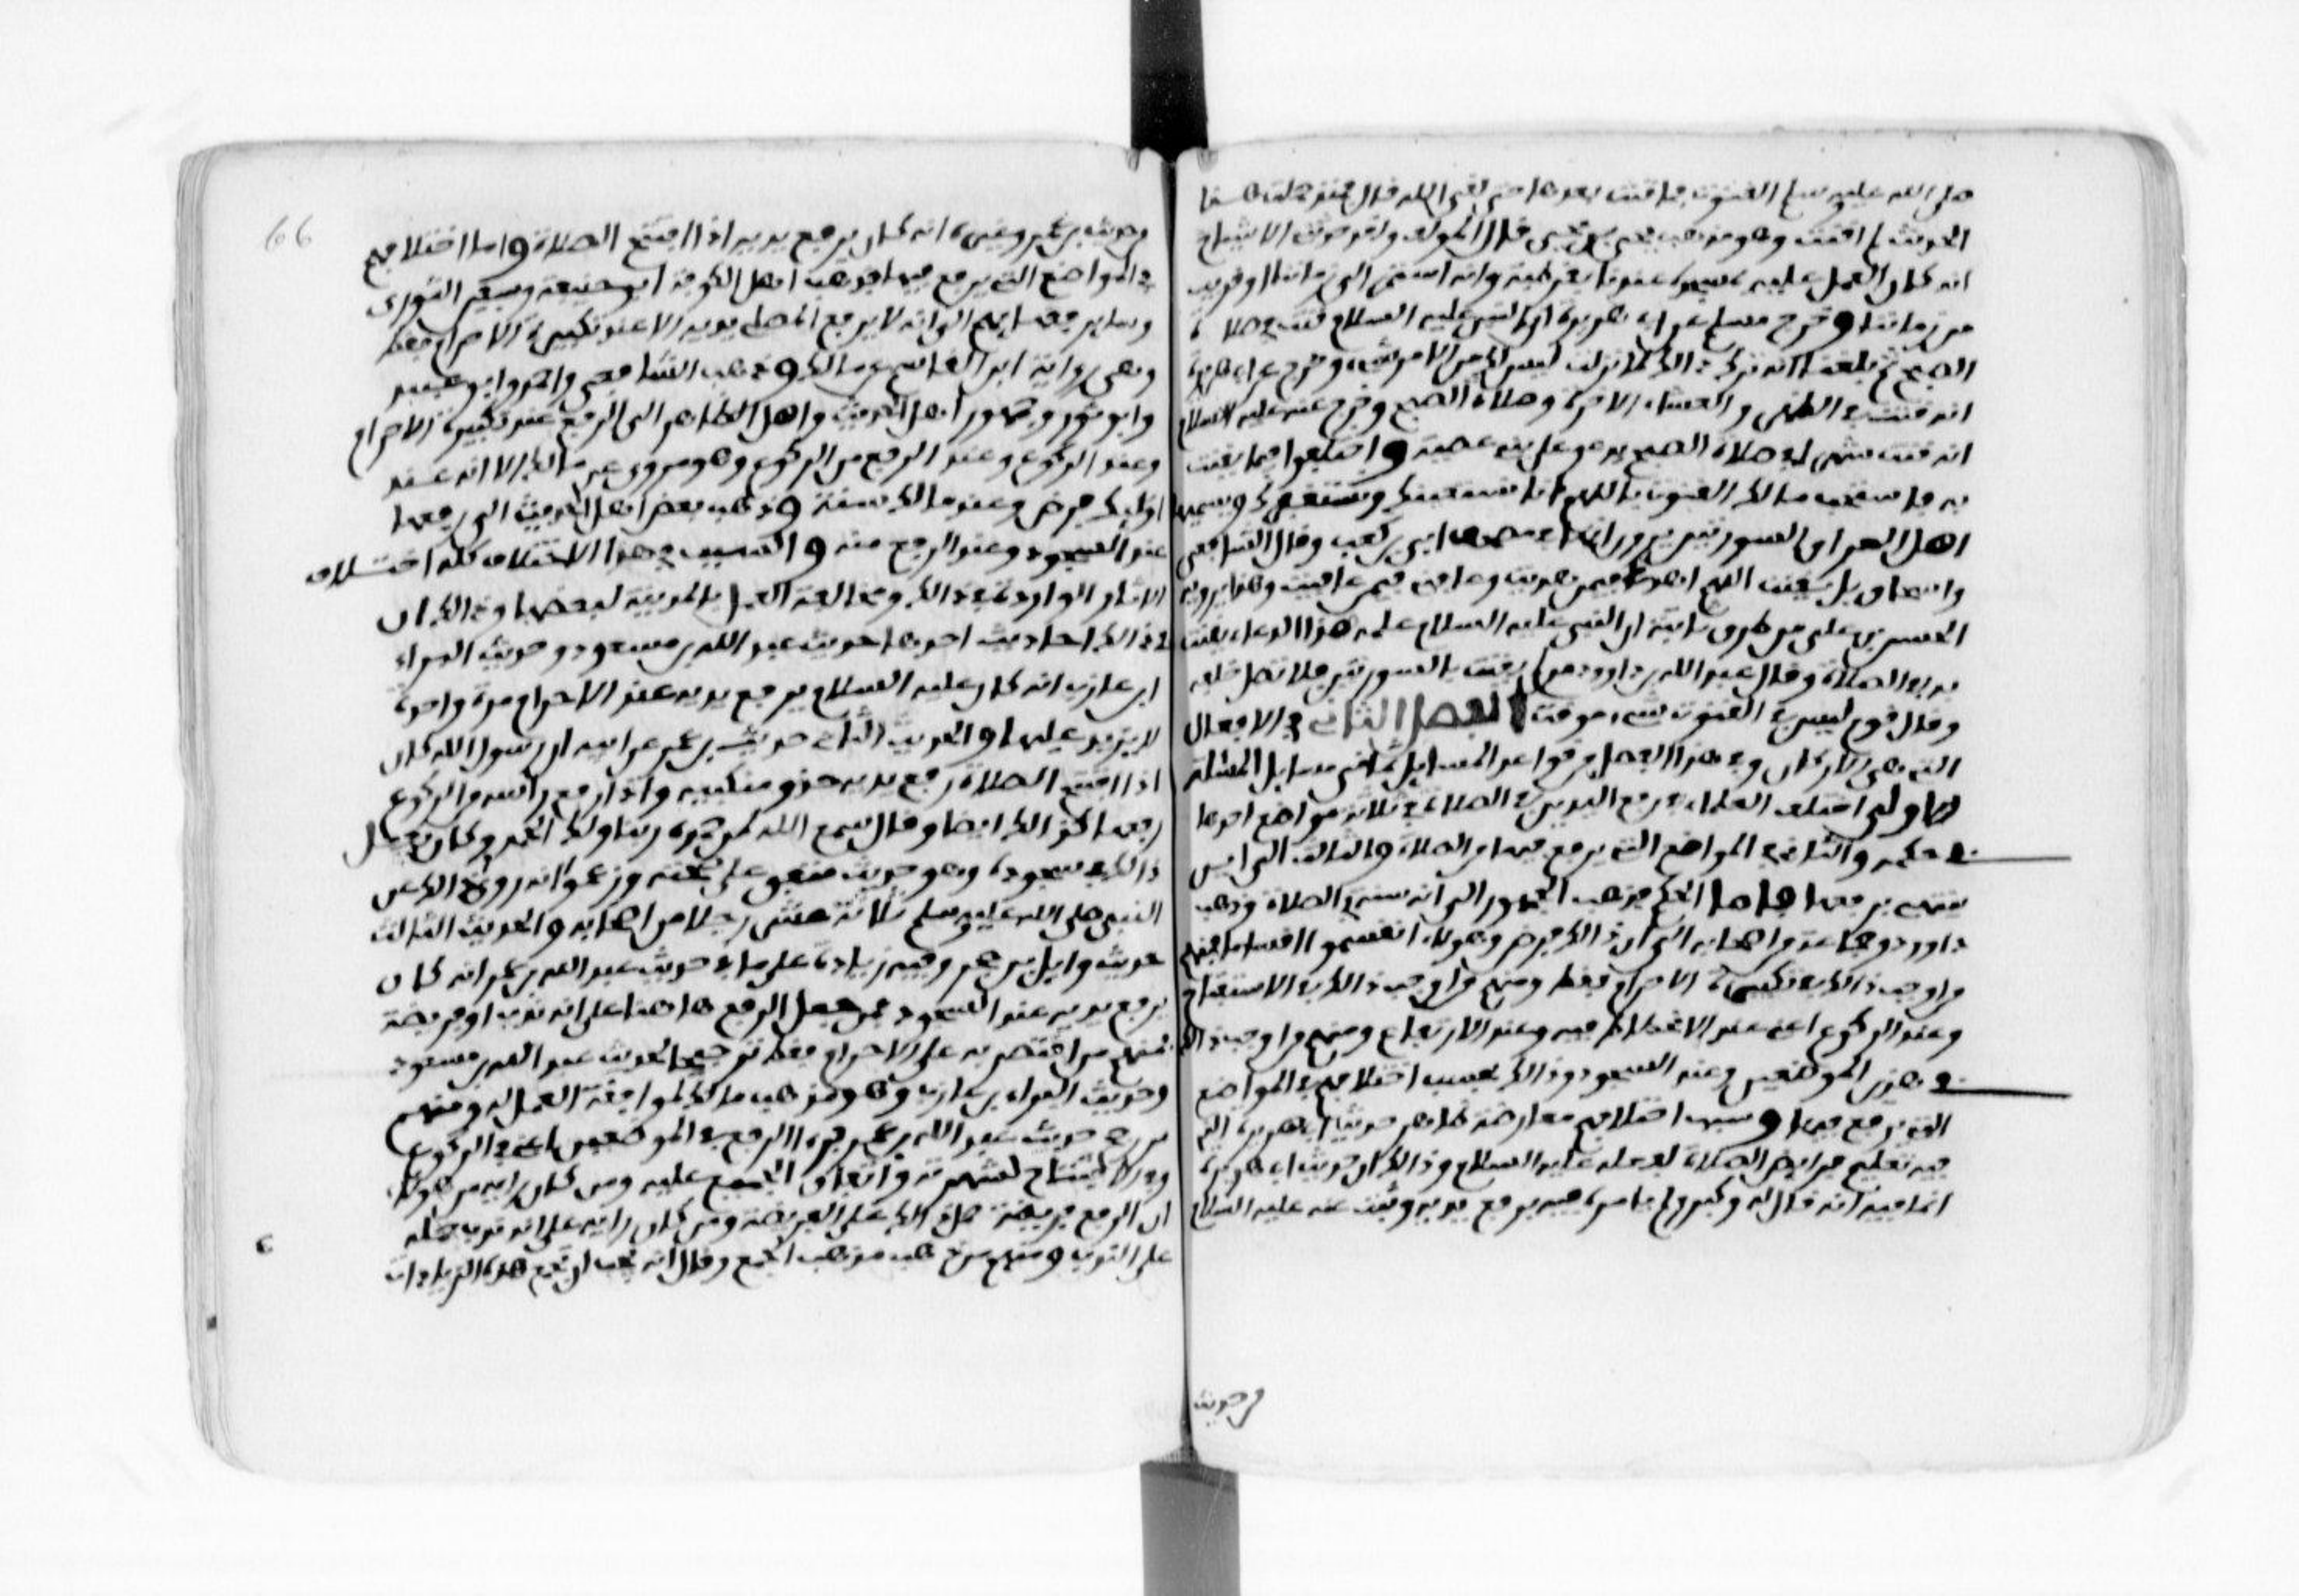 صلى الله عليه وسلم القنوت فما قنت بعدها حتى لقي الله قال فمنذ حملت هذا
الحديث لم اقنت وهو مذهب يحيى بن يحيى قال المؤلف ولقد حدثني الاشياخ
انه كان العمل عليه بمسجده عندنا بقرطبة وانه استمر الى زماننا او قريب
من زماننا وخرج مسلم عن ابي هريرة ان النبي عليه السلام قنت في صلاة
الصبح ثم بلغنا انه ترك ذالك لما نزلت ليس لك من الامر شيء وخرج عن ابي هريرة
انه قنت في الظهر والعشاء الاخرة وصلاة الصبح وخرج عنه عليه السلام
انه قنت شهرا في صلاة الصبح يدعو على بني عصية واختلفوا فيما يقنت
به فاستحب مالك القنوت باللهم انا نستعينك ونستغفرك ويسميها
اهل العراق السورتين يروى انها في مصحف ابي بن كعب وقال الشافعي
واسحاق بل يقنت اللهم اهدنا فيمن هديت وعافنا فيمن عافيت وهذا يرويه
الحسن بن علي من طرق ثابتة ان النبي عليه السلام علمه هذا الدعاء يقنت
به في الصلاة وقال عبد الله بن داوود من لم يقنت بالسورتين فلا تصل خلفه
وقال قوم ليس في القنوت شيء موقت الفصل الثاني في الافعال
التي هي الاركان وفي هذا الفصل من قواعد المسايل ثماني مسايل المسئلة
الاولى اختلف العلماء في رفع اليدين في الصلاة في ثلاثة مواضع احدها
في حكمه والثاني في المواضع التي يرفع فيها من الصلاة والثالث الى اين
ينتهي برفعها فاما الحكم فذهب الجمهور الى انه سنة في الصلاة وذهب
داوود وجماعة من اصحابه الى ان ذالك فرض وهولاء انقسموا اقساما فمنهم
من اوجب ذالك في تكبيرة الاحرام فقط ومنهم من اوجب ذالك في الاستفتاح
وعند الركوع اعني عند الانحطاط فيه وعند الارتفاع ومنهم من اوجب ذالك
في هذين الموضعين وعند السجود وذالك بحسب اختلافهم في المواضع
التي يرفع فيها وسبب اختلافهم معارضة ظاهر حديث ابي هريرة الذي
فيه تعليم فرايض الصلاة لفعله عليه السلام وذالك ان حديث ابي هريرة
انما فيه انه قال له وكبر ولم يامره فيه برفع يديه وثبت عنه عليه السلام
وحديث
66
وحديث ابن عمر وغيره انه كان يرفع يديه اذا افتتح الصلاة واما اختلافهم
في المواضع التي يرفع فيها فذهب اهل الكوفة ابو حنيفة وسفين الثوري
وساير فقهايهم الى انه لا يرفع المصلي يديه الا عند تكبيرة الاحرام فقط
وهي رواية ابن القاسم عن مالك وذهب الشافعي واحمد وابو عبيد
وابو ثور وجمهور اهل الحديث واهل الظاهر الى الرفع عند تكبيرة الاحرام
وعند الركوع وعند الرفع من الركوع وهو مروي عن مالك الا انه عند
اوليك فرض وعند مالك سنة وذهب بعض اهل الحديث الى رفعها
عند السجود وعند الرفع منه والسبب في هذا الاختلاف كله اختلاف
الاثار الواردة في ذالك ومخالفة العمل بالمدينة لبعضها وذالك ان
في ذالك احاديث احدها حديث عبد الله بن مسعود وحديث البراء
ابن عازب انه كان عليه السلام يرفع يديه عند الاحرام مرة واحدة
لا يزيد عليها والحديث الثاني حديث ابن عمر عن ابيه ان رسول الله كان
اذا افتتح الصلاة رفع يديه حذو منكبيه واذا رفع راسه من الركوع
رفعهما كذالك ايضا وقال سمع الله لمن حمده ربنا ولك الحمد وكان لا يفعل
ذالك في سجوده وهو حديث متفق على صحته وزعموا انه روى ذالك عن
النبي صلى الله عليه وسلم ثلاثة عشر رجلا من اصحابه والحديث الثالث
حديث وايل بن حجر وفيه زيادة على ما في حديث عبد الله بن عمر انه كان
يرفع يديه عند السجود فمن حمل الرفع هاهنا على انه ندب او فريضة
فمنهم من اقتصر به على الاحرام فقط ترجيحا لحديث عبد الله بن مسعود
وحديث البراء بن عازب وهو مذهب مالك لموافقة العمل له ومنهم
من رجح حديث عبد الله بن عمر فرءا الرفع في الموضعين اعني في الركوع
وفي الافتتاح لشهرته واتفاق الجميع عليه ومن كان رايه من هولاء
ان الرفع فريضة حمل ذالك على الفريضة ومن كان رايه على انه ندب حمله
على الندب ومنهم من ذهب مذهب الجمع وقال انه يجب ان تجمع هذه الزيادات